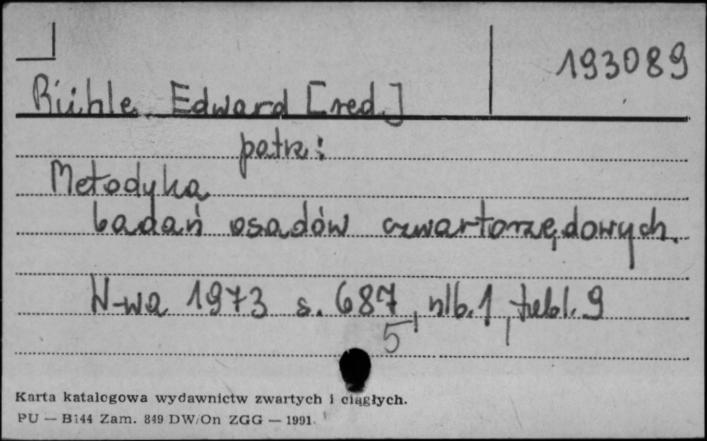 193089
Rühle Edward [red.]
patrz:
Metodyka
badań osadów czwartorzędowych.
W-wa 1973 s. 687, nlb. 1, tabl. 9
5
Karta katalogowa wydawnictw zwartych i ciągłych.
PU — B144 Zam. 849 DW/On ZGG — 1991.